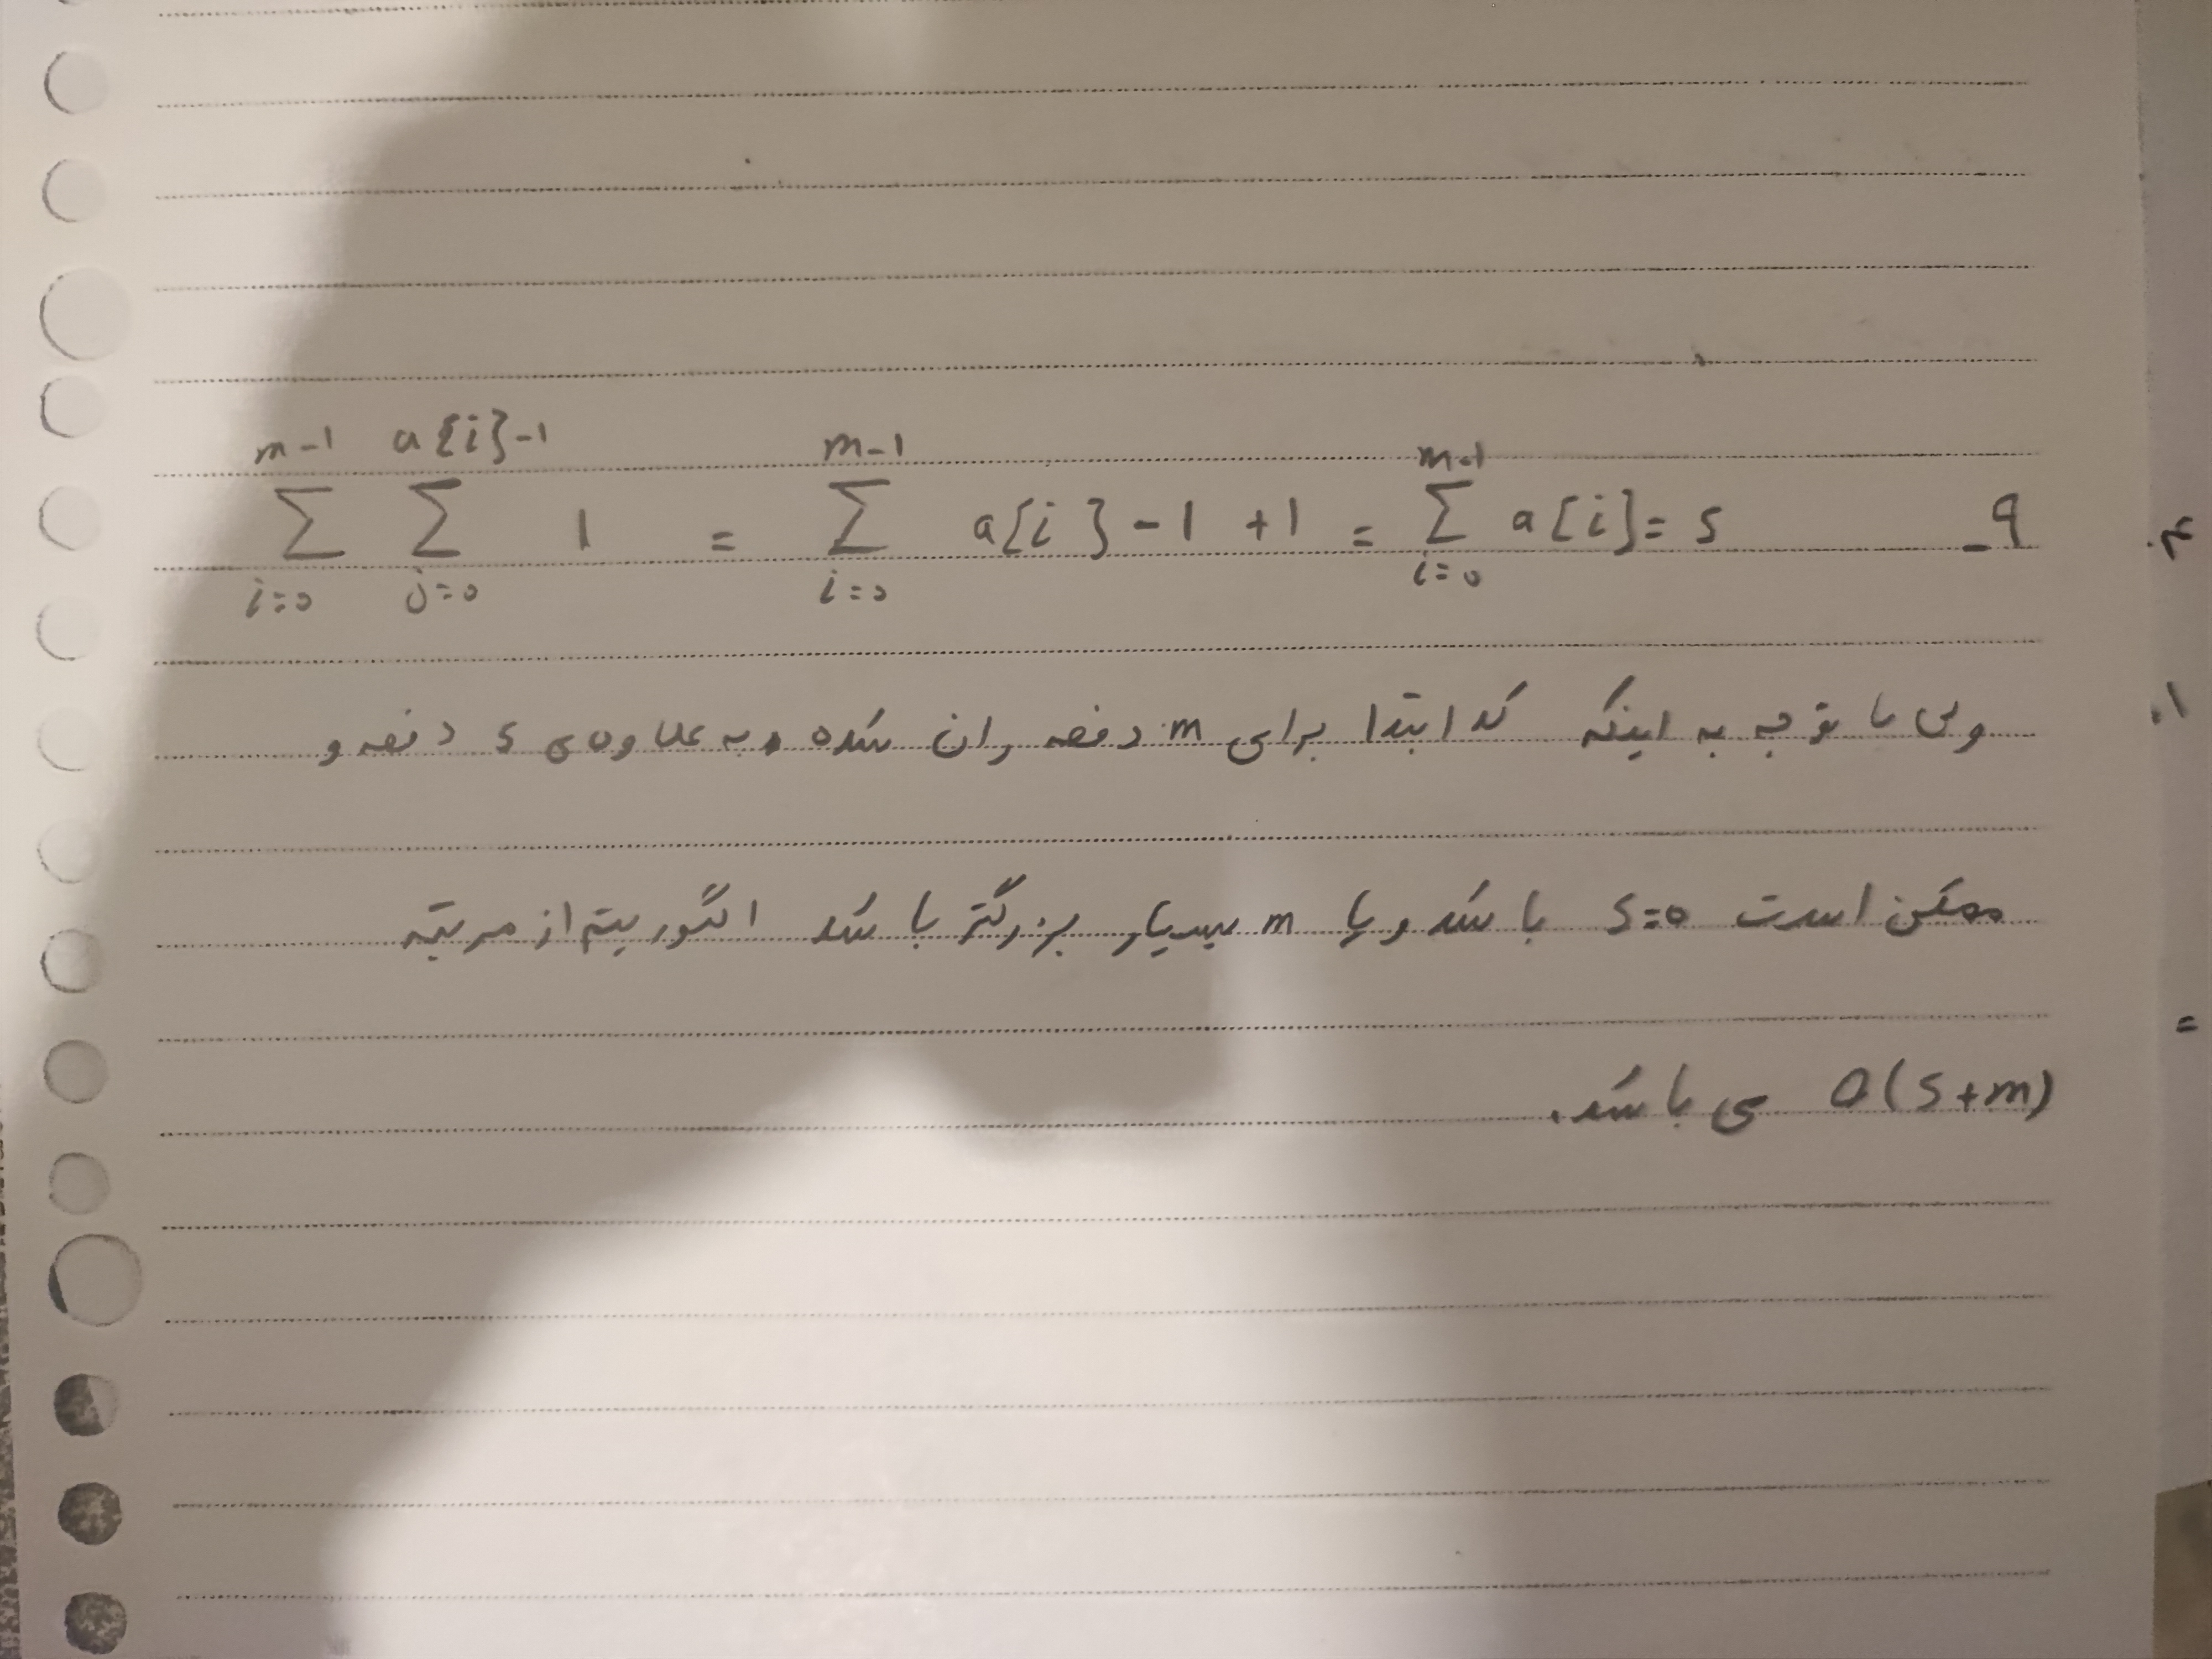 9- \sum_{i=0}^{m-1} \sum_{j=0}^{a[i]-1} 1 = \sum_{i=0}^{m-1} a[i]-1+1 = \sum_{i=0}^{m-1} a[i] = s
ولی با توجه به اینکه کد ابتدا برای m دفعه ران شده به علاوه ی s دفعه و
ممکن است s=0 باشد و یا m بسیار بزرگتر باشد الگوریتم از مرتبه
O(s+m) می باشد.